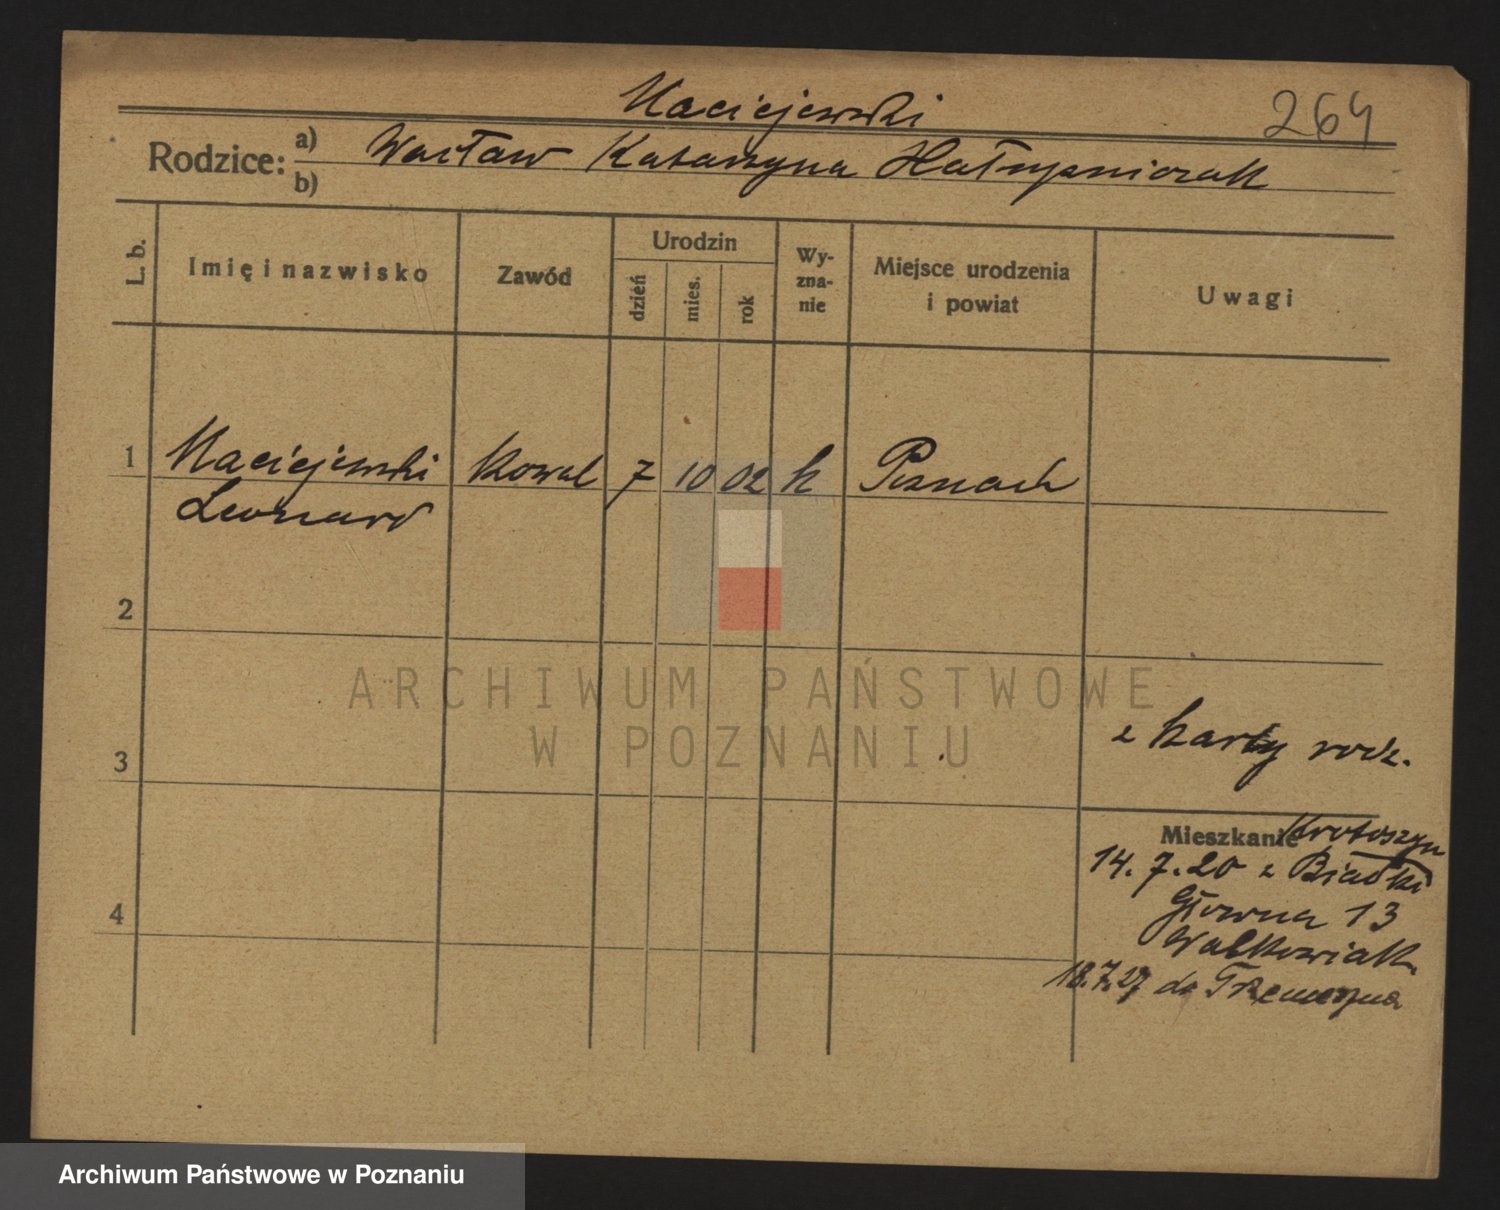 Maciejewski
264
Rodzice: a) Wacław Katarzyna
b)
L. b.
Imię i nazwisko
Zawód
Urodzin
dzień
mies.
rok
Wy-
zna-
nie
Miejsce urodzenia
i powiat
Uwagi
1 Maciejewski Kowal 7 10 02 k Poznań
Leonard
2
ARCHIWUM PAŃSTWOWE
W POZNANIU
z karty rodz.
3
Mieszkanie Krotoszyn
14.7.20 z Białki
Główna 13
Walkowiak
4
18.7.27 do Trzemeszna
Archiwum Państwowe w Poznaniu